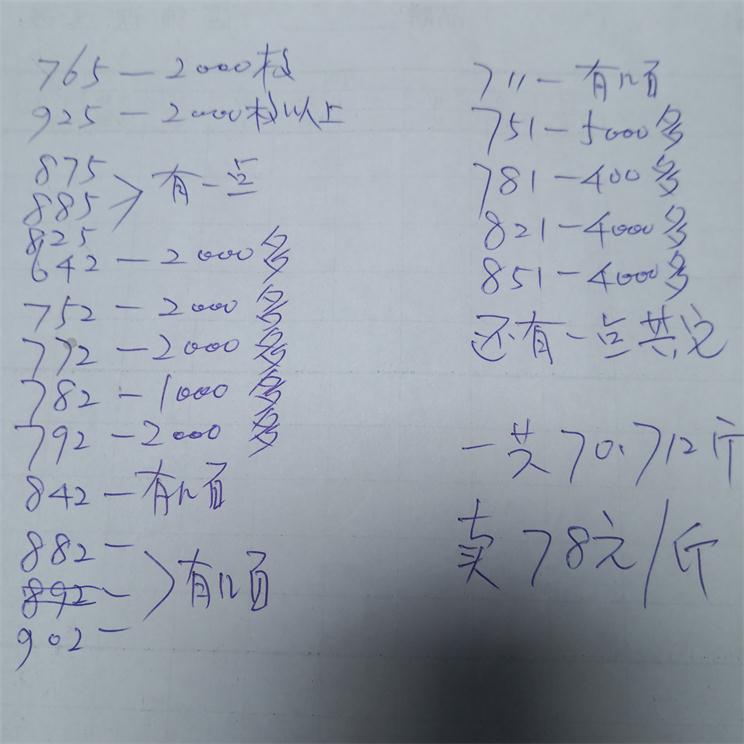 765－2000枚
925－2000枚以上
875
885
825
有一点
642－2000多
752－2000多
772－2000多
782－1000多
792－2000多
842－有几百
882－
892－
902－
有几百
711－有几百
751－5000多
781－400多
821－4000多
851－4000多
还有一点其它
一共70.712斤
卖78元/斤